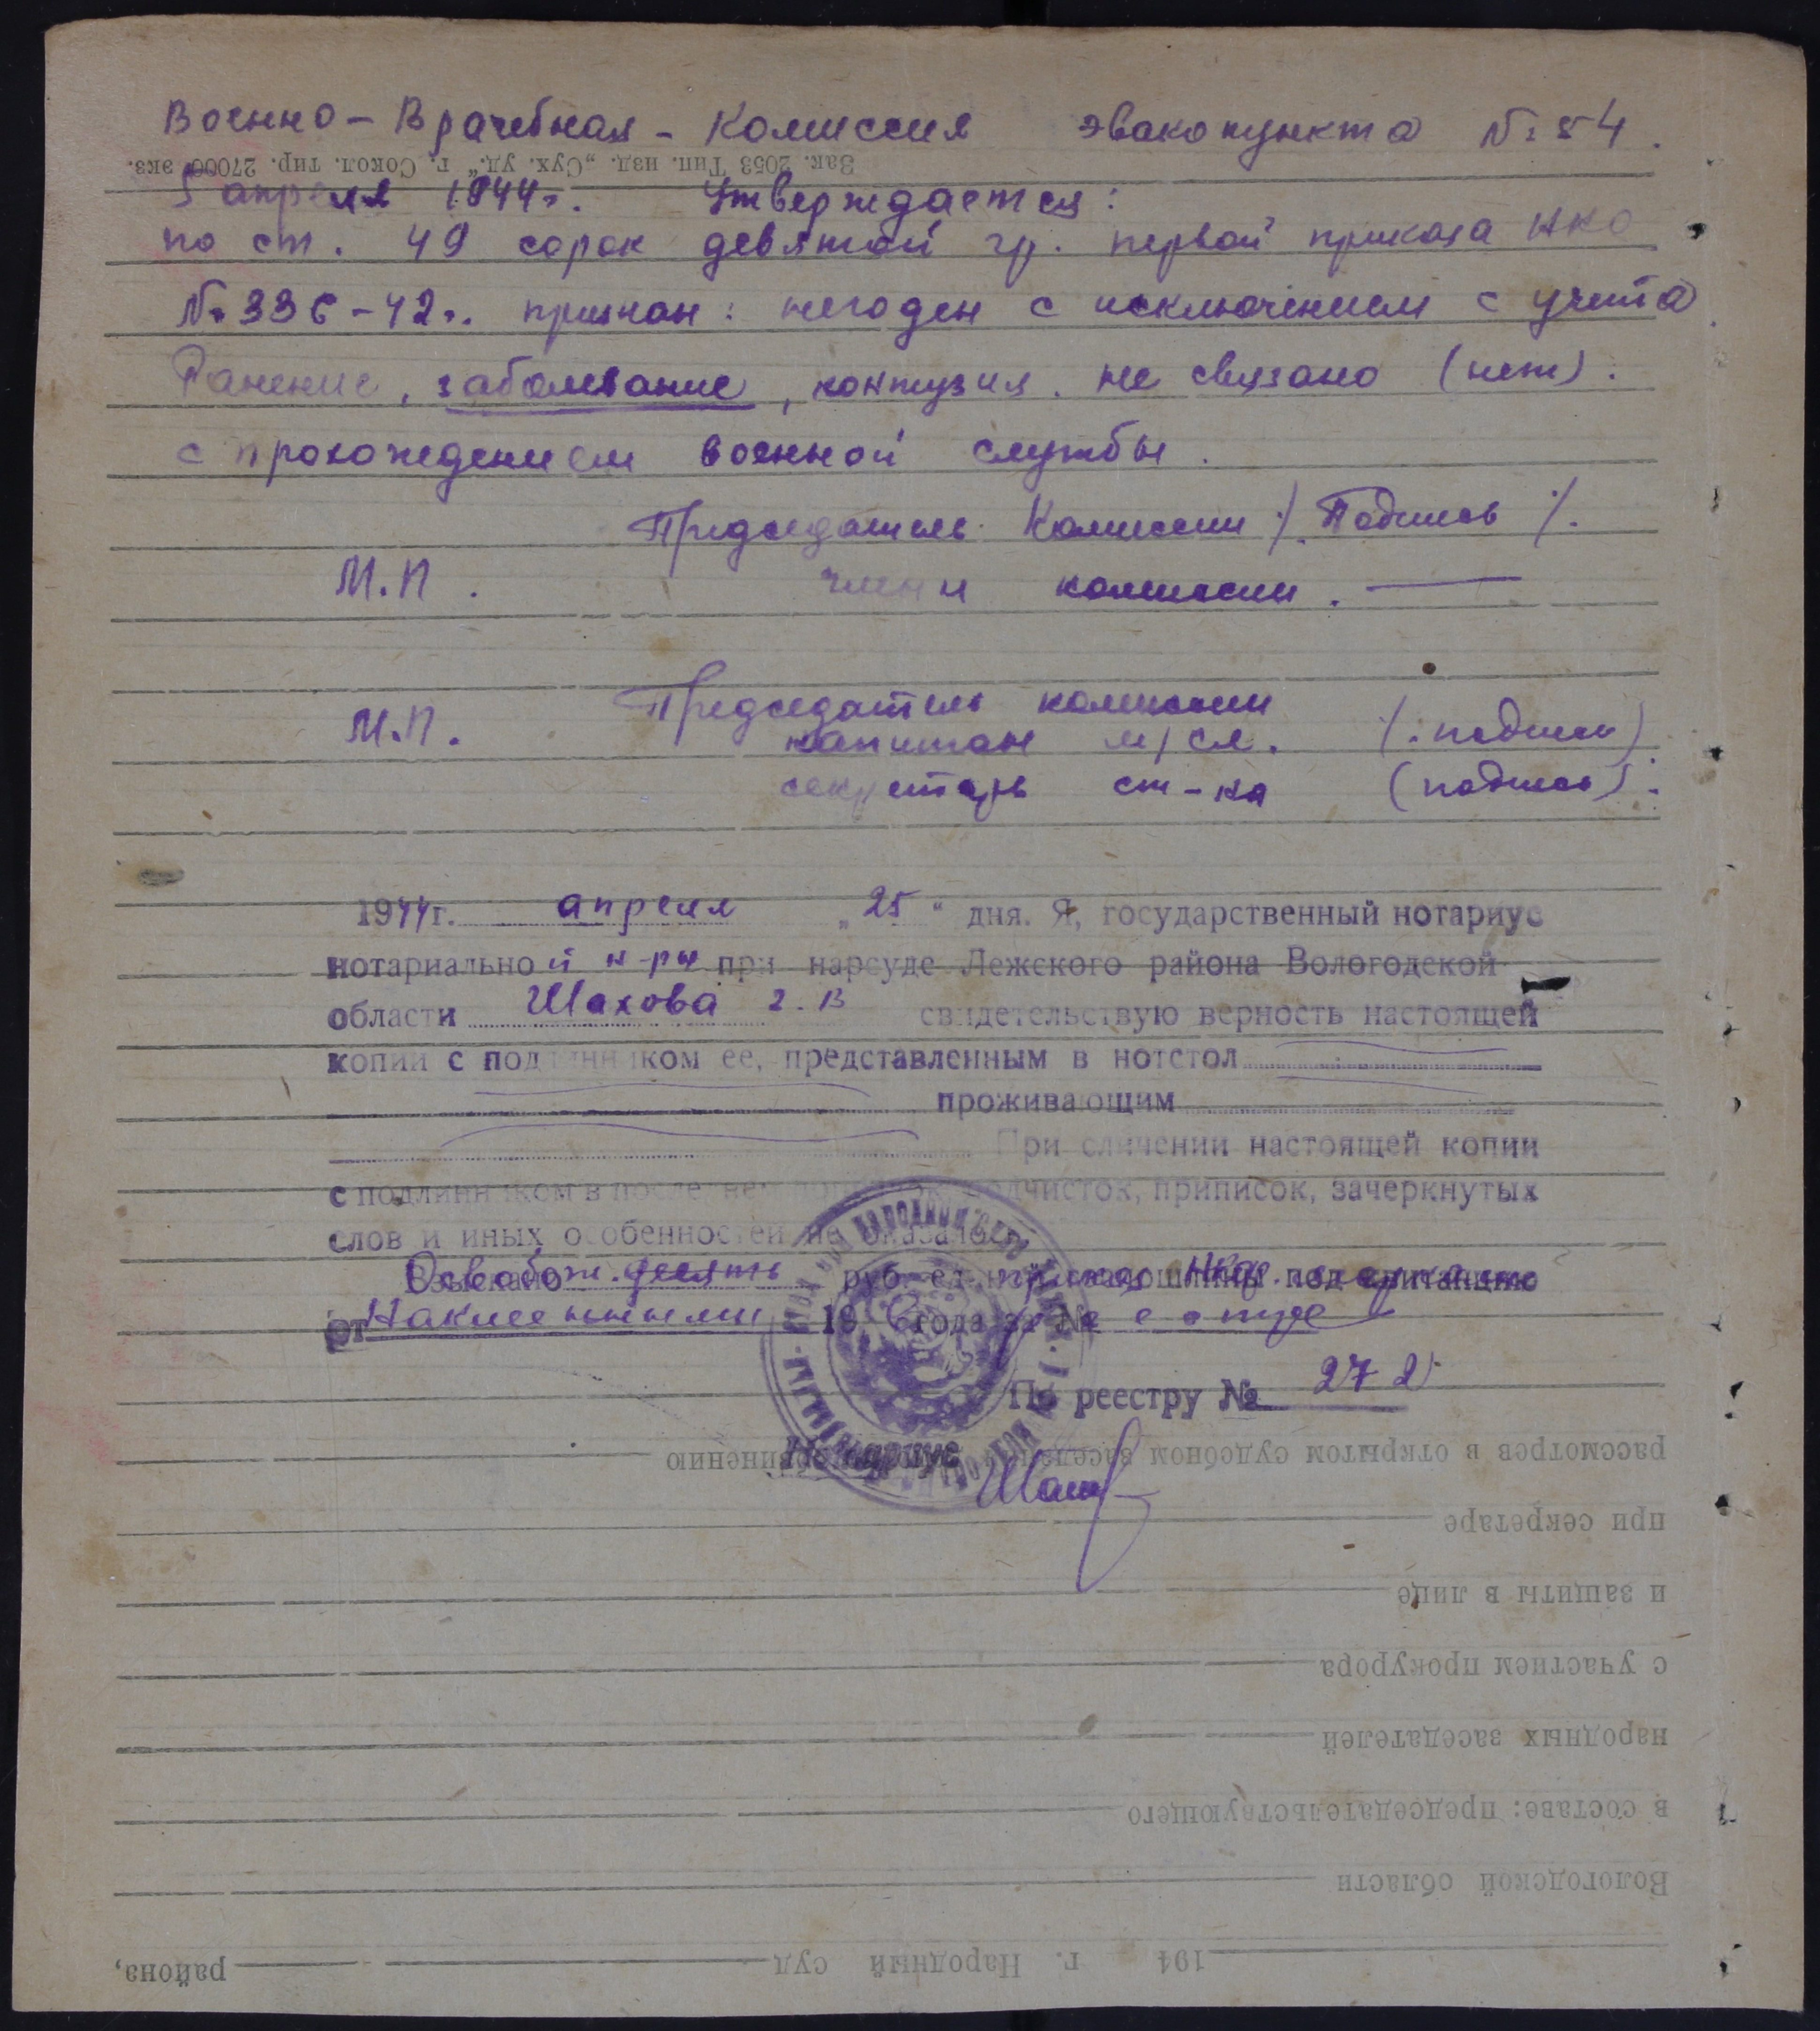 Военно-Врачебная-Комиссия эвакопункта № 54.
Зак. 2053 Тип. изд. „Сух. уд." г. Сокол. тир. 27000 экз.
5 апреля 1944г. Утверждается:
по ст. 49 сорок девятой гр. первой приказа НКО
№ 336-42г. признан: негоден с исключением с учета.
Ранение, заболевание, контузия. не связано (нет).
с прохождением военной службы.
Председатель Комиссии /. Подпись /.
М.П. члены комиссии. —
Председатель комиссии
М.П. капитан м/сл. /: подпись)
секретарь ст-ка (подпись).
1944г. апреля „25" дня. Я, государственный нотариус
нотариальной н-ры при нарсуде Лежского района Вологодской
области Шахова З.В свидетельствую верность настоящей
копии с подлинником ее, представленным в нотстол
проживающим
При сличении настоящей копии
с подлинником в последнем подчисток, приписок, зачеркнутых
слов и иных особенностей не оказалось
Взыскано руб. ед. пошлины под квитанцию
от 19 года за №
По реестру № 272
Нотариус Шах
рассмотрев в открытом судебном заседании обвинению
при секретаре
и защиты в лице
с участием прокурора
народных заседателей
в составе: председательствующего
Вологодской области
194 г. Народный суд района,